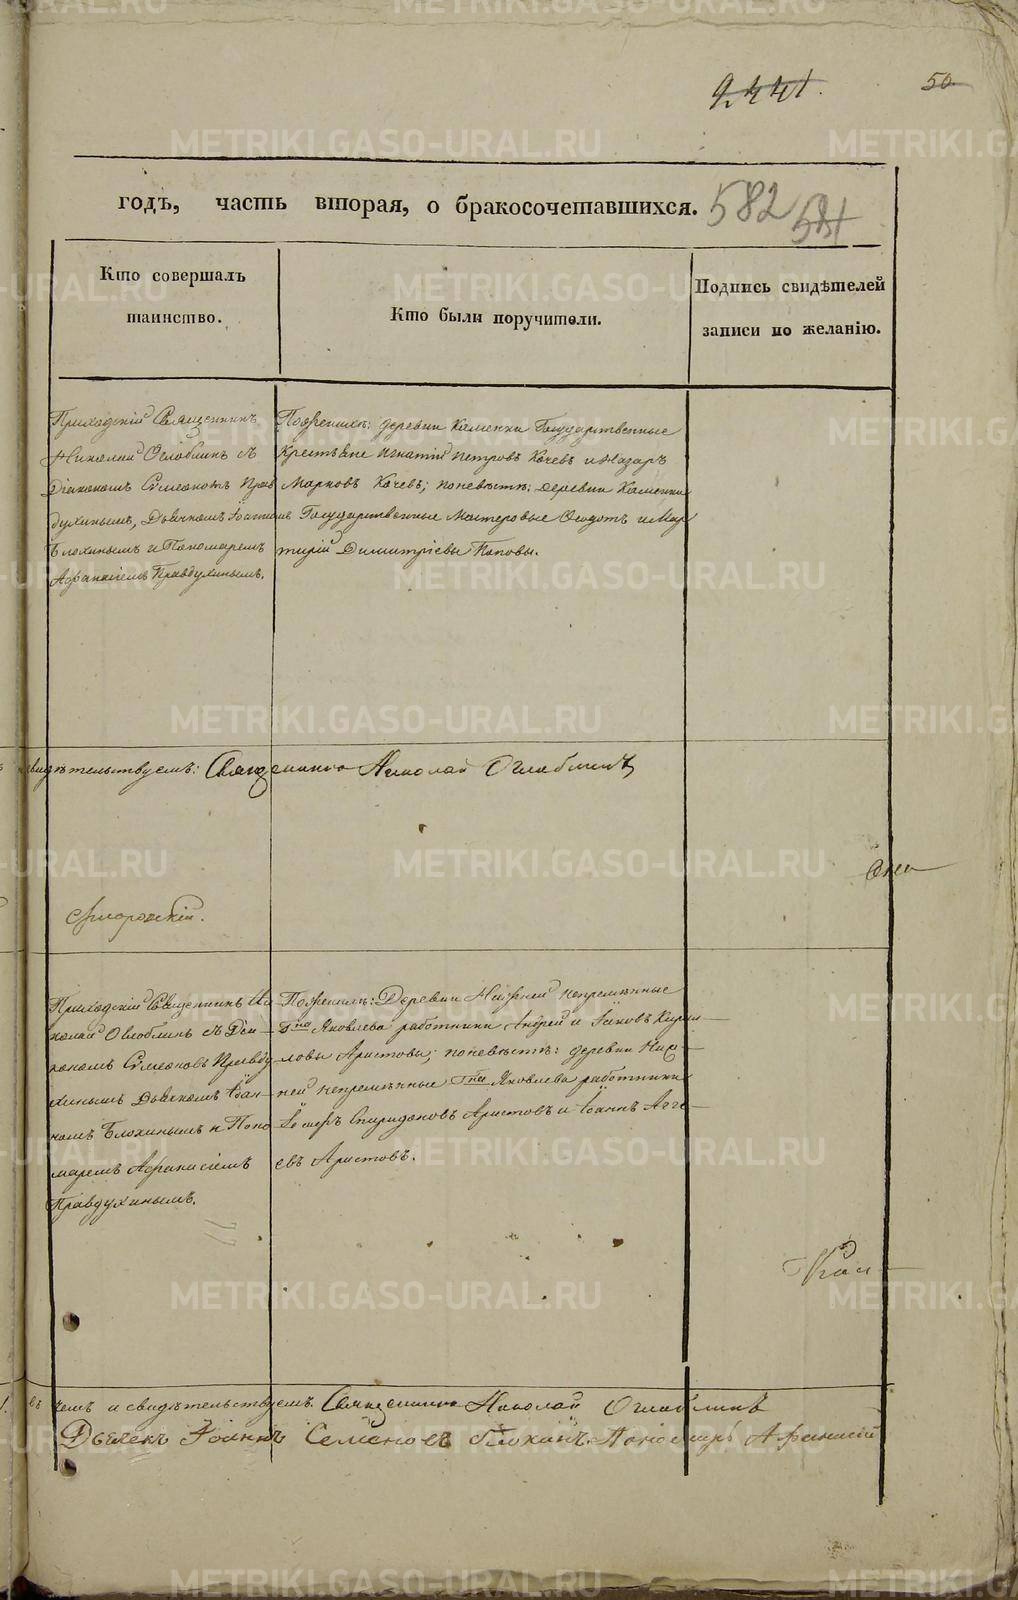 2441.
50
годъ, часть вторая, о бракосочетавшихся.
582
Кто совершалъ
таинство.
Кто были поручители.
Подпись свидѣтелей
записи по желанію.
Приходскій Священникъ
Николай Оглоблинъ съ
Діакономъ Симеономъ Прав
духинымъ, Дьячкомъ Іоанномъ
Блохинымъ и Пономаремъ
Афанасіемъ Правдухинымъ.
По женихѣ: деревни Каменки Государственные
крестьяне Игнатій Петровъ Качевъ и Назаръ
Марковъ Качевъ; по невѣстѣ: деревни Каменки
Государственные Мастеровые Ѳеодотъ и Мар
тирій Димитріевы Поповы.
свидѣтельствуемъ: Священникъ Николай Оглоблинъ
Приходскій Священникъ Ни
колай Оглоблинъ съ Діа
кономъ Симеономъ Правду
хинымъ Дьячкомъ Іоан
номъ Блохинымъ и Поно
маремъ Афанасіемъ
Правдухинымъ.
По женихѣ: Деревни Нижней непремѣнные
Гна Яковлева работники Андрей и Іаковъ Кирил
ловы Аристовы; по невѣстѣ: деревни Ниж
ней непремѣнные Гна Яковлева работники
Спиридоновъ Аристовъ и Іоаннъ Агге
евъ Аристовъ.
въ чемъ и свидѣтельствуемъ Священникъ Николай Оглоблинъ
Дьячекъ Іоаннъ Семеновъ Блохинъ Пономарь Афанасій
METRIKI.GASO-URAL.RU